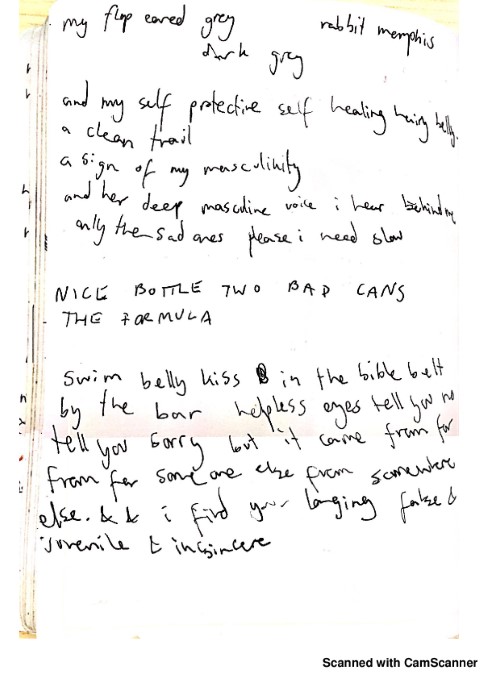 my flop eared grey rabbit memphis
dark grey
and my self protective self healing hairy belly
a clean trail
a sign of my masculinity
and her deep masculine voice i hear behind me
only the sad ones please i need slow
NICE BOTTLE TWO BAD CANS
THE FORMULA
swim belly kiss in the bible belt
by the bar helpless eyes tell you no
tell you sorry but it came from far
from far someone else from somewhere
else. & & i find your longing false &
juvenile & insincere
Scanned with CamScanner